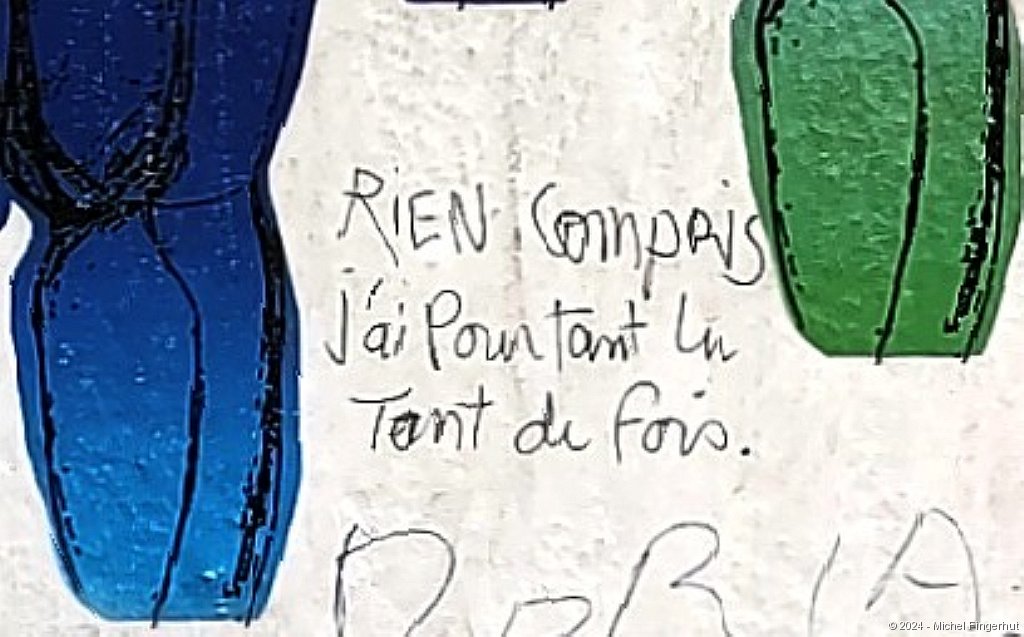 RiEN Compris
J'ai Pourtant lu
Tant de fois.
© 2024 - Michel Fingerhut